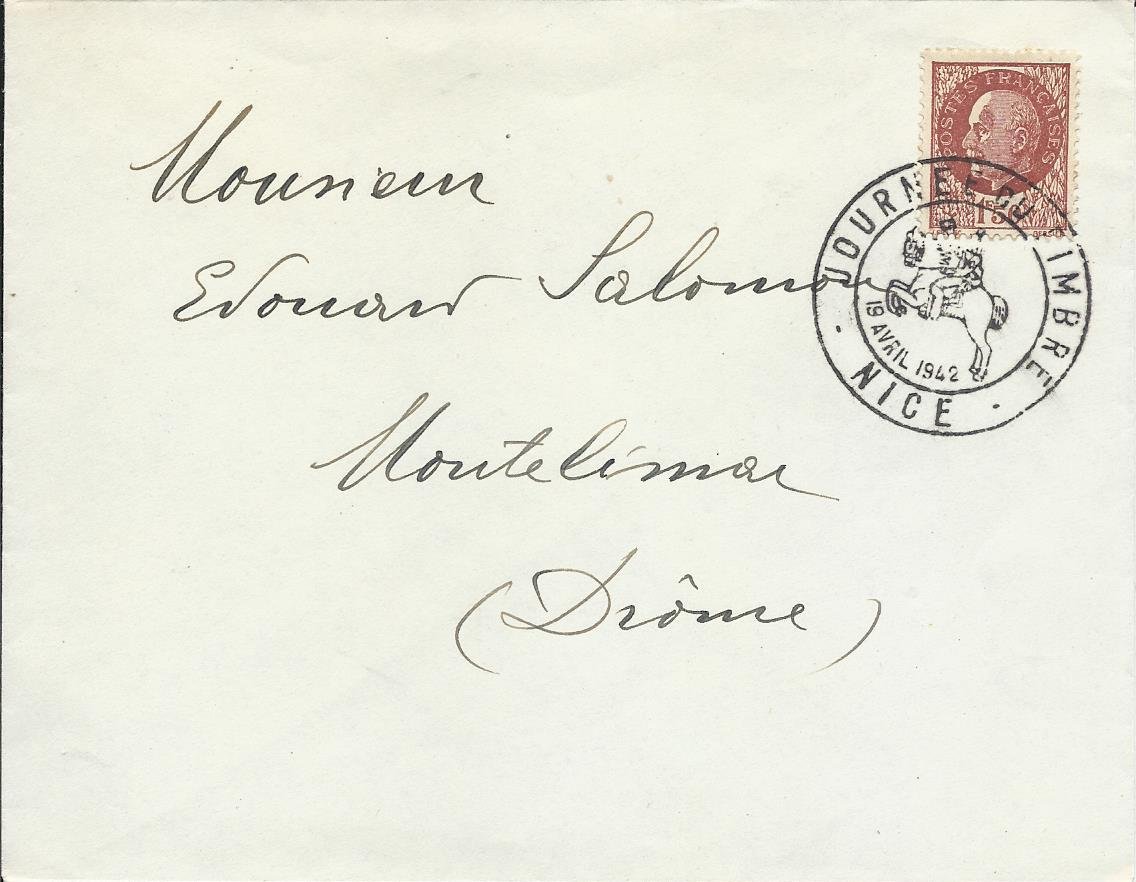 POSTES FRANÇAISES
1F50
JOURNÉE DU TIMBRE
19 AVRIL 1942
· NICE ·
Monsieur
Edouard Salomon
Montelimar
(Drôme)